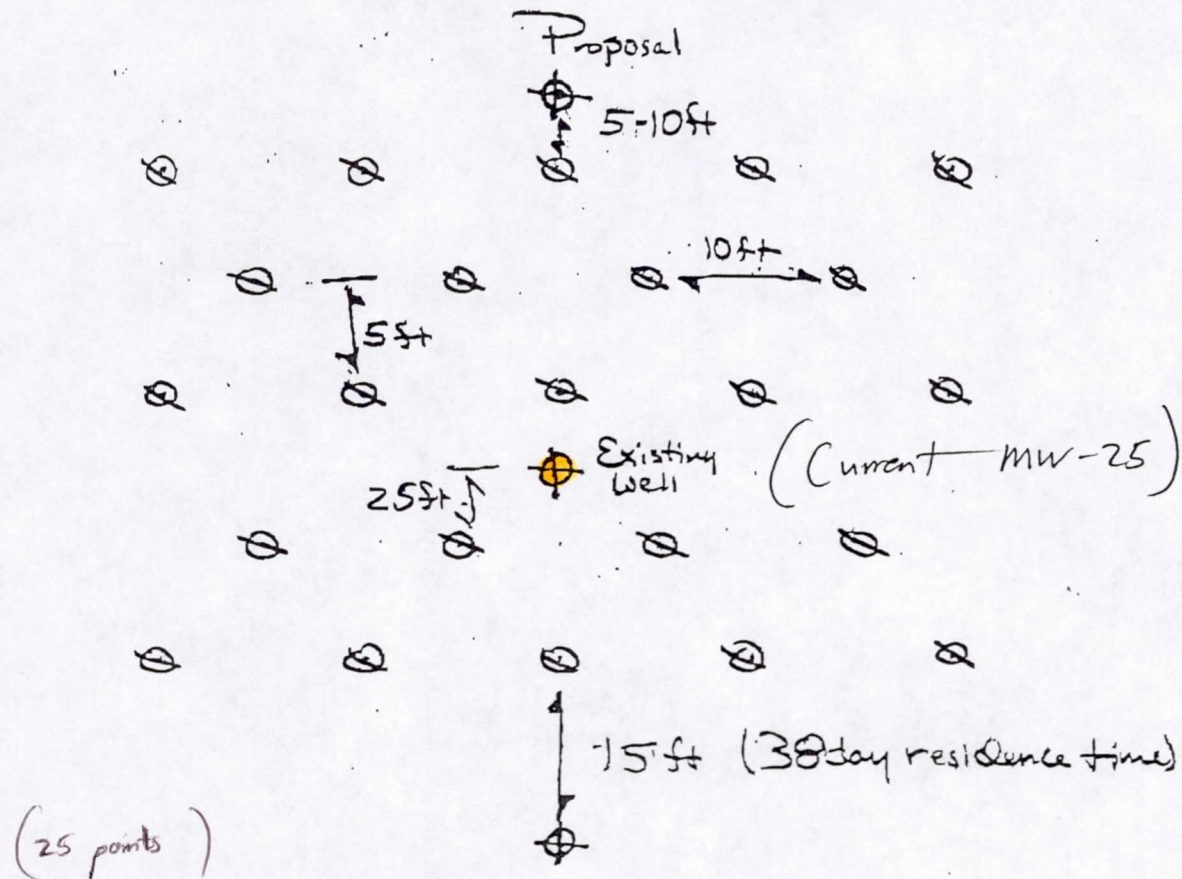 Proposal
5-10ft
10ft
5ft
Existing
well
(Current MW-25)
25ft
15ft (38day residence time)
(25 points)